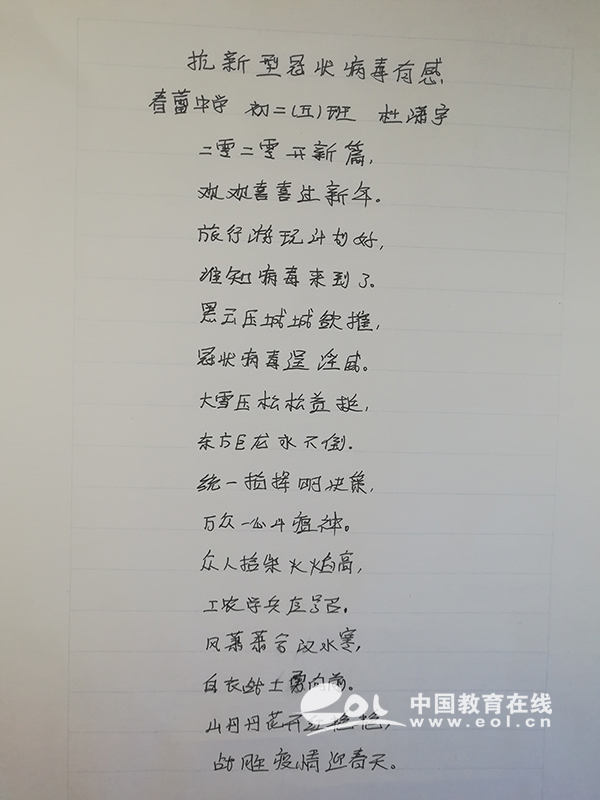 抗新型冠状病毒有感
春蕾中学 初二(五)班 杜潇宇
二零二零开新篇,
欢欢喜喜过新年。
旅行游玩计划好,
谁知病毒来到了。
黑云压城城欲推,
冠状病毒逞淫威。
大雪压松松益挺,
东方巨龙永不倒。
统一指挥明决策,
万众一心斗瘟神。
众人拾柴火焰高,
工农学兵在号召。
风萧萧兮汉水寒,
白衣战士勇向前。
山丹丹花开红艳艳,
战胜疫情迎春天。
中国教育在线
www.eol.cn